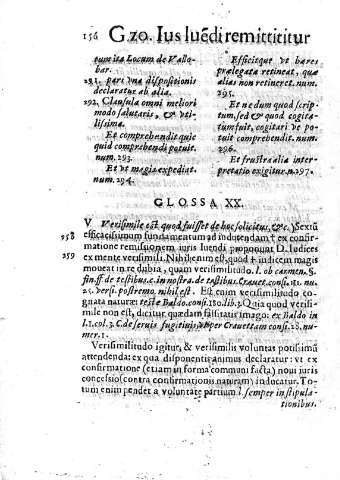 156 G.20. Ius luẽdi remittititur
tum ita Locum de Vallo-
bar.
291. pars una dispositionis
declaratur ab alia.
292. Clausula omni meliori
modo salutaris, & uti-
lissima.
Et comprehendit quic
quid comprehendi potuit.
num. 293.
Et ut magis expediat.
num. 294.
Efficitque ut hæres
prælegata retineat, quæ
alia non retineret. num.
295.
Et nedum quod scrip-
tum, sed & quod cogita-
tum fuit, cogitari ve po-
tuit comprehendit. num.
296.
Et frustra alia inter-
pretatio exigitur. n. 297.
GLOSSA XX.
Verisimile est quod fuisset de hoc solicitus, &c. Sextũ
258 efficacissimum fundamentum ad inducendam † ex confir-
matione remissionem iuris luendi proponunt D. Iudices
259 ex mente verisimili. Nihil enim est, quod † indicem magis
moueat in re dubia, quam verisimilitudo. l. ob carmen. §.
fin. ff. de testibus. c. in nostra. de testibus. Crauet. consi. 182. nu.
25. versi. postremo nihil est. Est enim verisimilitudo co-
gnata naturæ: teste Baldo. consi. 120. lib. 3. Quia quod verisi-
mile non est, dicitur quædam falsitatis imago: ex Baldo in
l. 1. col. 3. C. de seruis fugitiuis, & per Crauettam consi. 28. nu-
mer. 1.
Verisimilitudo igitur, & verisimilis voluntas potissimũ
attendenda: ex qua disponentis animus declaratur: vt ex
confirmatione (etiam in forma communi facta) noui iuris
concessio (contra confirmationis naturam) inducatur. To-
tum enim pendet a voluntate partium l. semper in stipula-
tionibus.